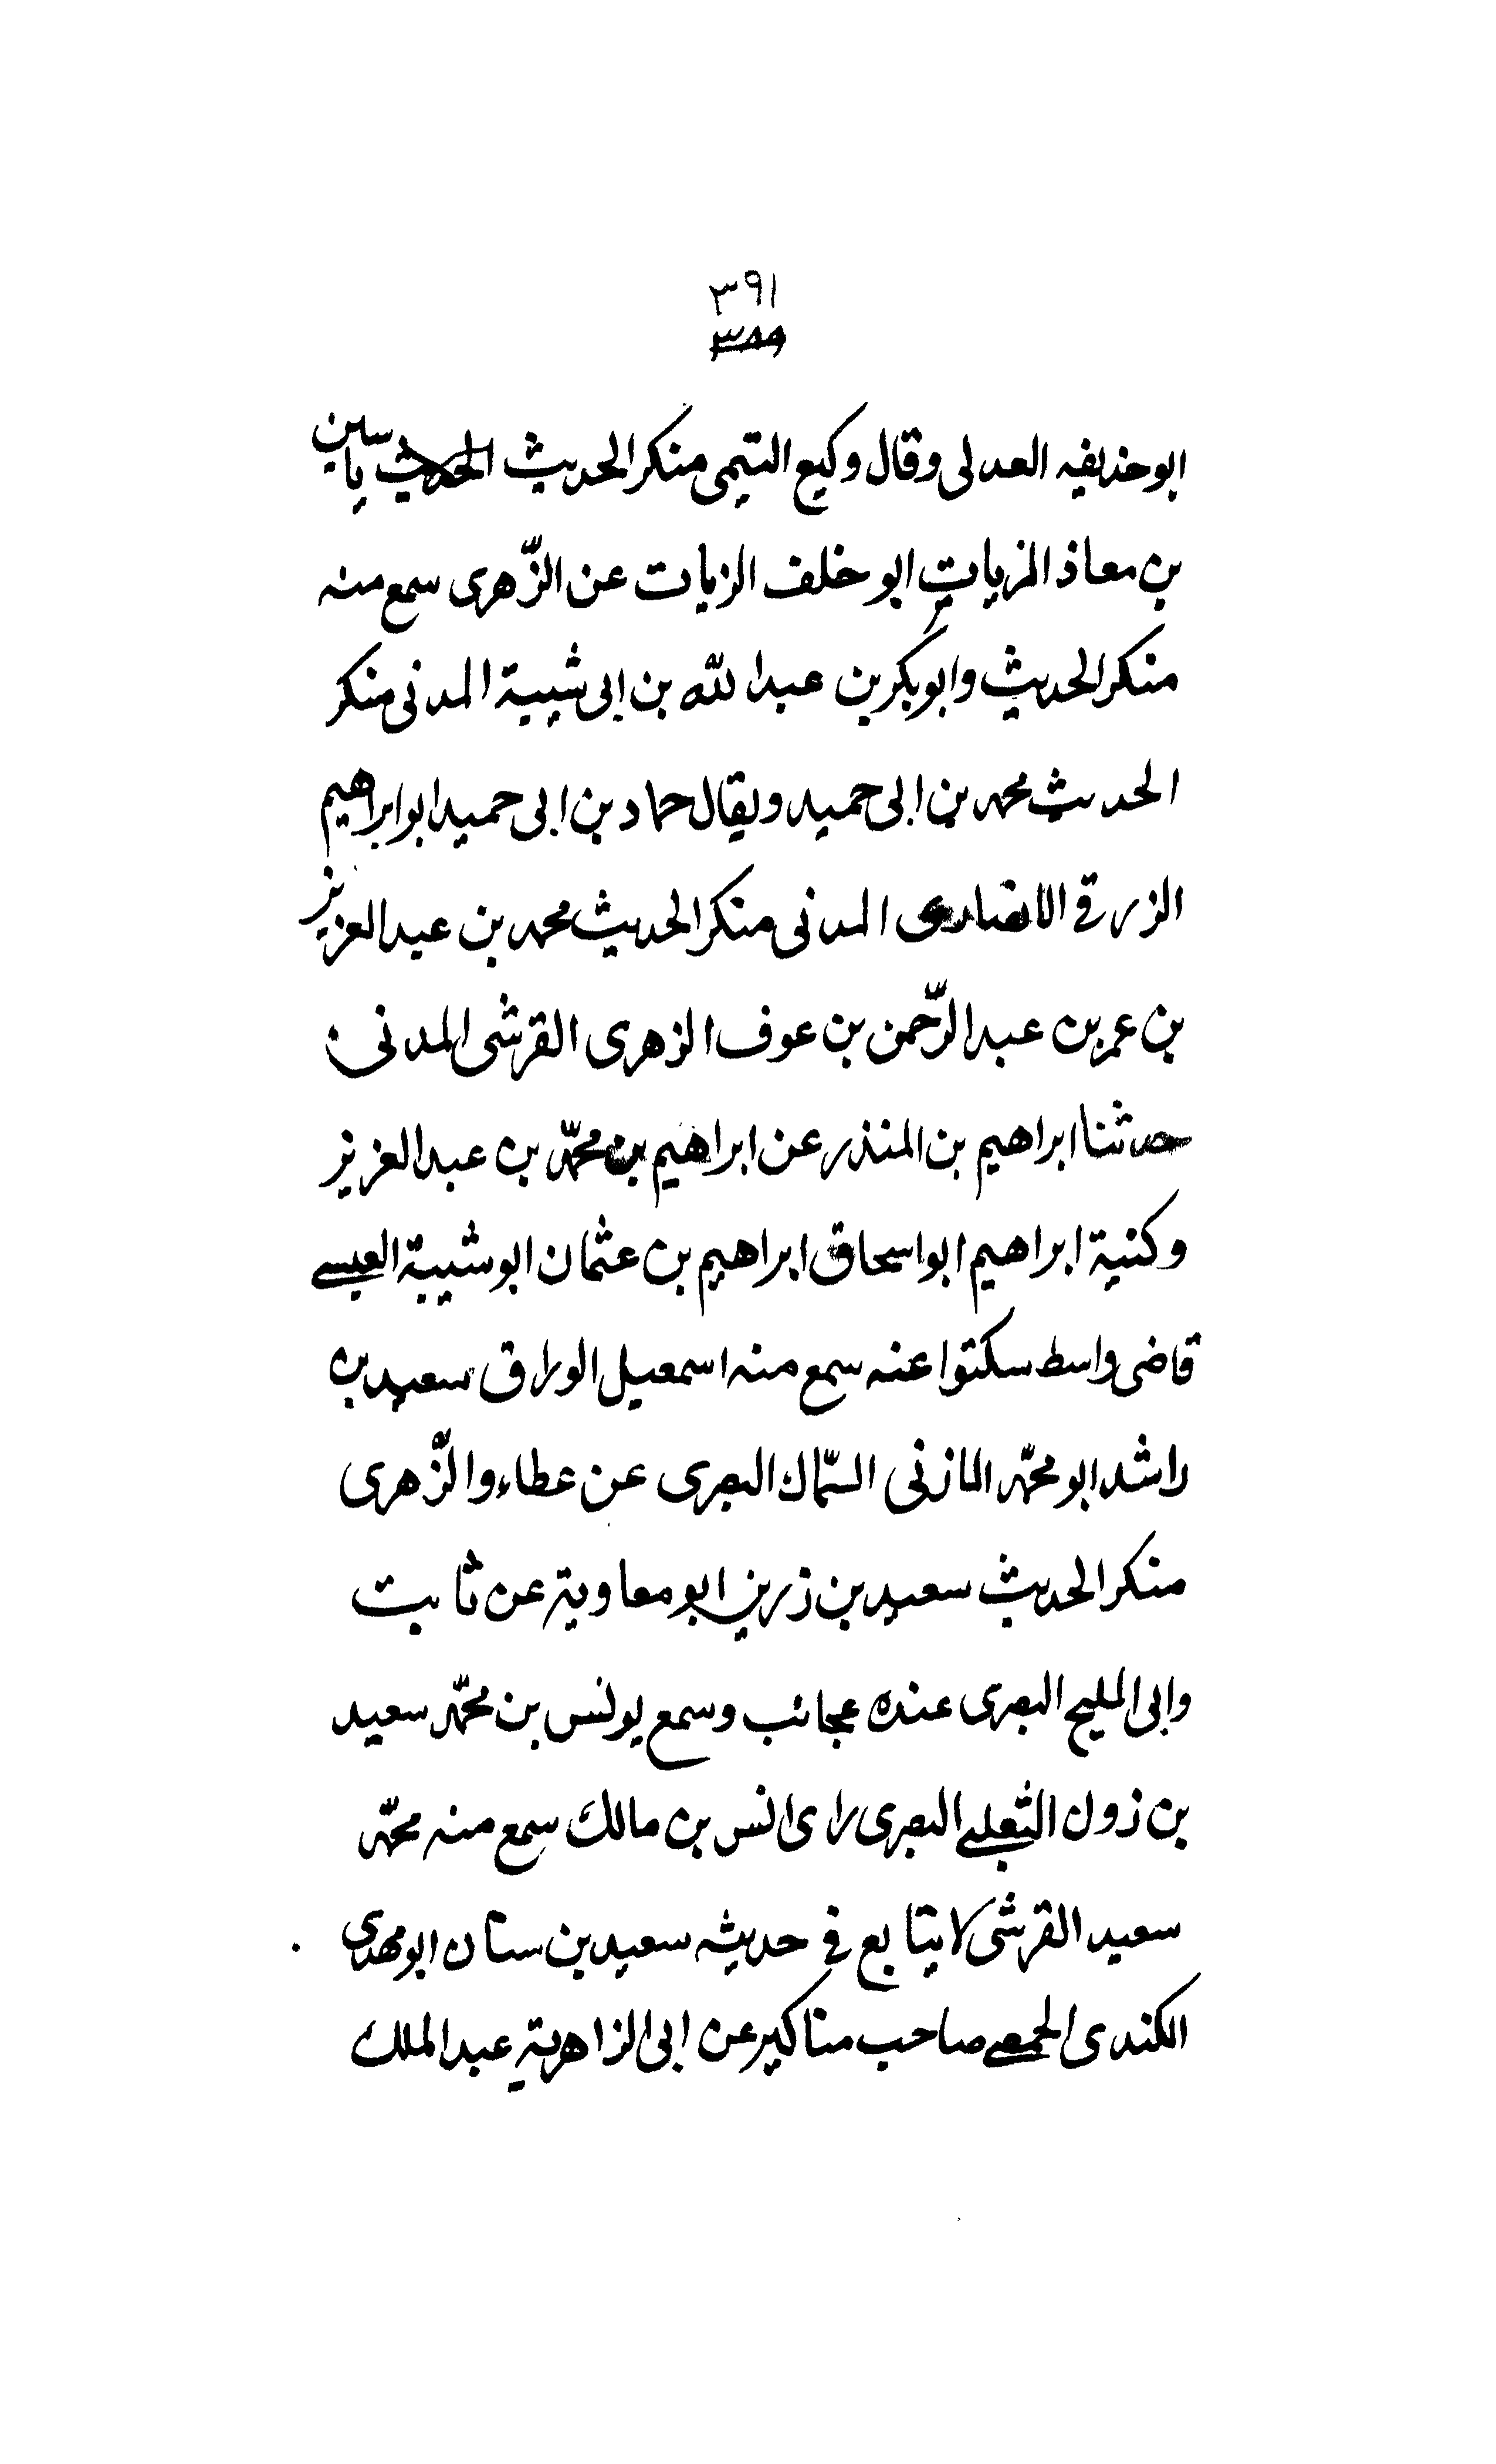 ٣٩١
٣٨٩
ابو حذيفه العدلى وقال وكيع التيمى منكر الحديث الحديث ياسين
بن معاذ الزيات ابو خلف الزيات عن الزّهرى سمع منه
منكر الحديث وابو بكر بن عبد الله بن ابى شيبة المدنى منكر
الحديث محمد بن ابى حميد ويقال حماد بن ابى حميد ابو ابراهيم
الزرقے الانصارى المدنى منكر الحديث محمد بن عبد العزيز
بن عمر بن عبد الرّحمن بن عوف الزهرى القرشى المدنى
حدثنا ابراهيم بن المنذر عن ابراهيم بن محمّد بن عبد العزيز
وكنية ابراهيم ابو اسحاق ابراهيم بن عثمان ابو شيبة العبسے
قاضى واسط سكتوا عنه سمع منه اسمعيل الوراق سعيد بن
راشد ابو محمّد المازنى السّماك البصرى عن عطاء والزّهرى
منكر الحديث سعيد بن زربى ابو معاوية عن ثابت
وابى المليح البصرى عنده عجائب وسمع يونس بن محمّد سعيد
بن زون الثعلبے البصرى راى انس بن مالك سمع منه محمّد
سعيد القرشى لا يتابع فے حديثه سعيد بن سنان ابو مهدى
الكندى الحمصے صاحب مناكير عن ابى الزاهرية عبد الملك